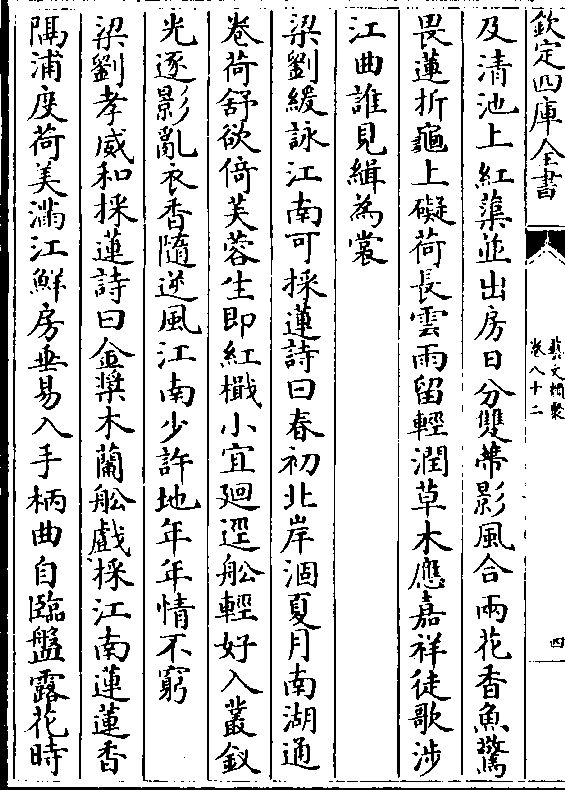 欽定四庫全書
藝文類聚
卷八十二
四
及清池上紅蕖並出房日分雙蔕影風合兩花香魚驚
畏蓮折龜上礙荷長雲雨留輕潤草木應嘉祥徒歌涉
江曲誰見緝為裳
梁劉緩詠江南可採蓮詩曰春初北岸涸夏月南湖通
卷荷舒欲倚芙蓉生即紅檝小宜迴逕舩輕好入叢釵
光逐影亂衣香隨逆風江南少許地年年情不窮
梁劉孝威和採蓮詩曰金槳木蘭舩戲採江南蓮蓮香
隔浦度荷美滿江鮮房垂易入手柄曲自臨盤露花時